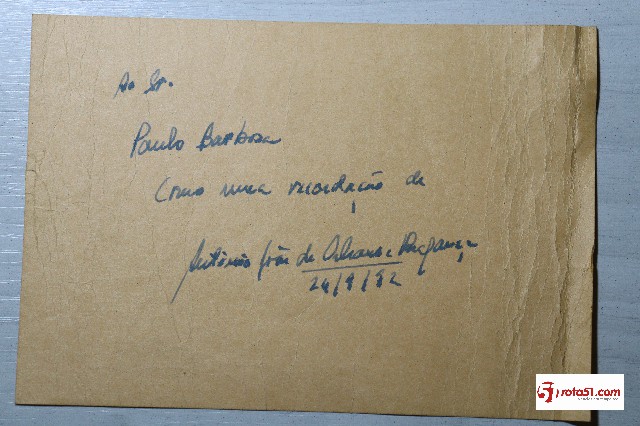 Ao Sr.
Paulo Barbosa
Como uma recordação de
Antônio João de Orleans e Bragança
24/9/82
rota51.com